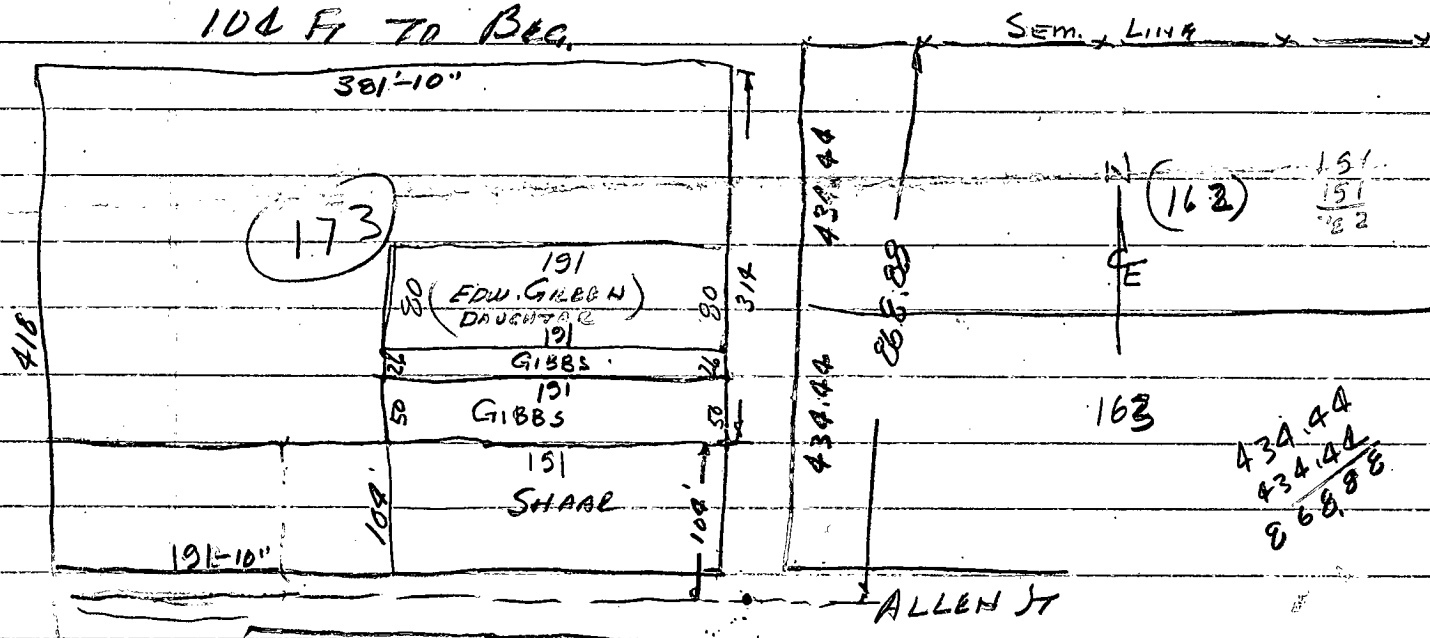 104 Ft To Beg.
Sem. Line
381'-10"
418
173
191
80 (EDW. GREEN) 80
DAUGHTER
191
26 GIBBS 26
191
50 GIBBS 50
314
191
SHAAR
104'
104'
191-10"
434.44
434.44
868.88
N
E
162
191
191
163
434.44
434.44
868.88
ALLEN ST